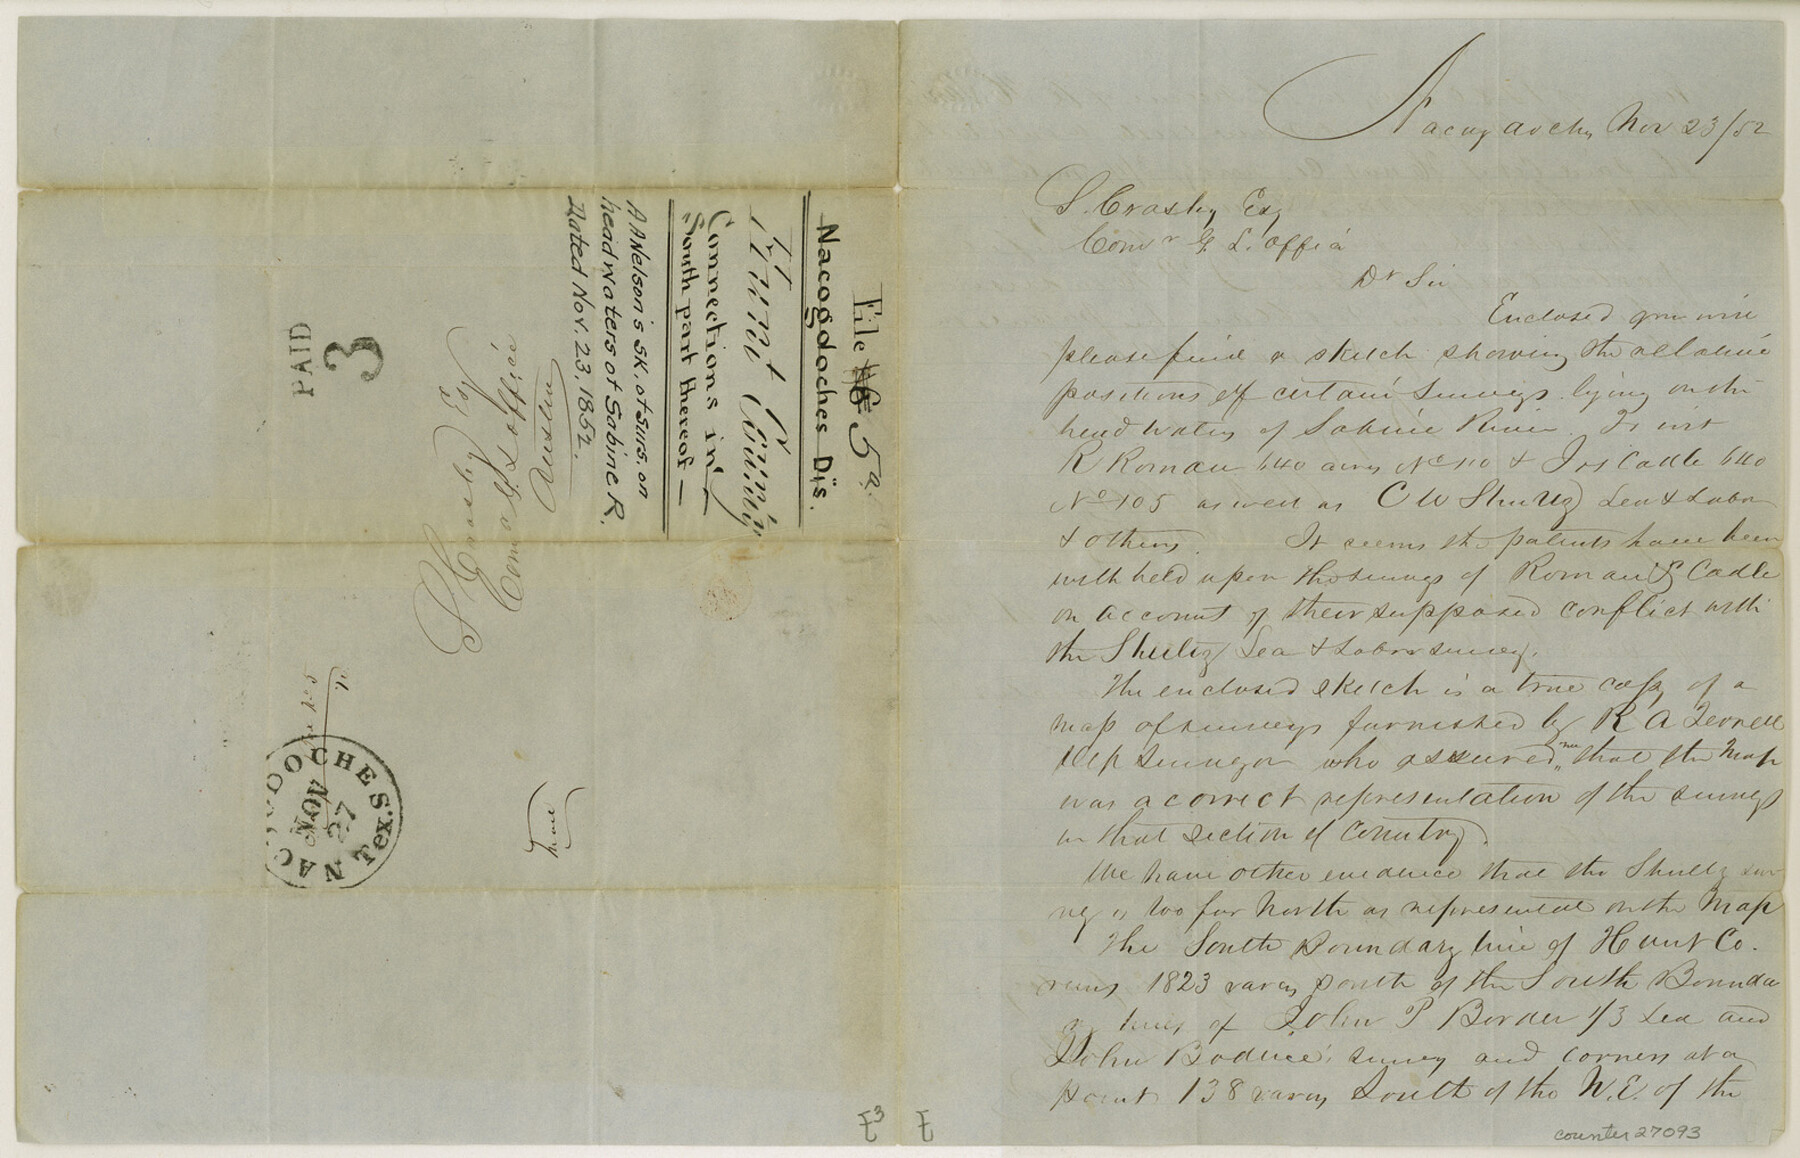 File 5a.
Nacogdoches Dis.
Hunt County
Connections in
South part thereof —
A A Nelson's Sk. of Surs. on
head waters of Sabine R.
Dated Nov. 23, 1852.
S Crosby Esqr
Comr G L office
Austin
PAID
3
NACOGDOCHES Tex.
NOV
27
Nacogdoches Nov 23/52
S. Crosby Esq
Comr G. L. Office
Dr Sir
Enclosed you will
please find a sketch showing the relative
positions of certain surveys lying on the
head waters of Sabine River. To wit
R Roman 640 acres No 110 & Jos Cadle 640
No 105 as well as C W Shultz Lea & Labor
& others. It seems the patents have been
with held upon the surveys of Roman & Cadle
on account of their supposed conflict with
the Shultz Lea & Labor survey.
The enclosed sketch is a true copy of a
map of surveys furnished by R A Terrell
Dep Surveyor who assured me that the Map
was a correct representation of the surveys
in that section of Country.
We have other evidence that the Shultz sur
vey is too far North as represented on the Map
The South Boundary line of Hunt Co.
runs 1823 varas south of the South Bounda
ry lines of John P Border 1/3 Lea and
John Bodine's survey and corners at a
point 138 varas South of the N.E. of the
counter 27093